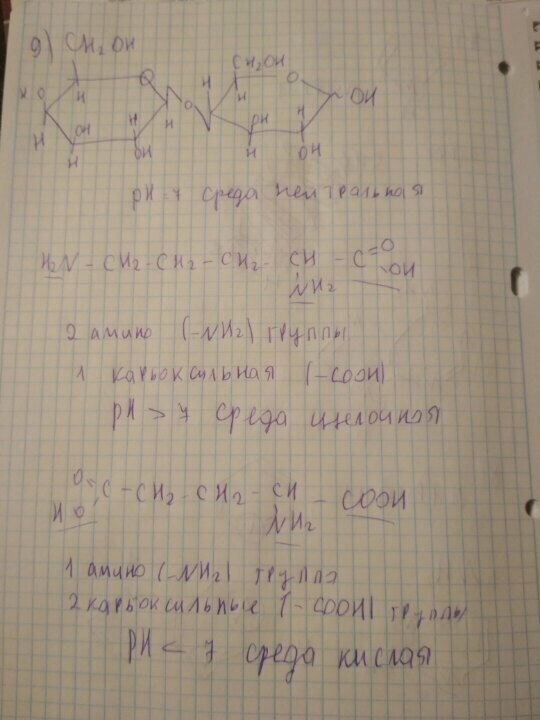 9) CH₂OH
CH₂OH
O O
H O H H O H H OH
H OH H H OH H
H OH H OH
pH = 7 среда нейтральная
H₂N - CH₂ - CH₂ - CH₂ - CH - C = O
OH
NH₂
2 амино (-NH₂) группы
1 карбоксильная (-COOH)
pH > 7 среда щелочная
O = C - CH₂ - CH₂ - CH - COOH
H O NH₂
1 амино (-NH₂) группа
2 карбоксильные (-COOH) группы
pH < 7 среда кислая